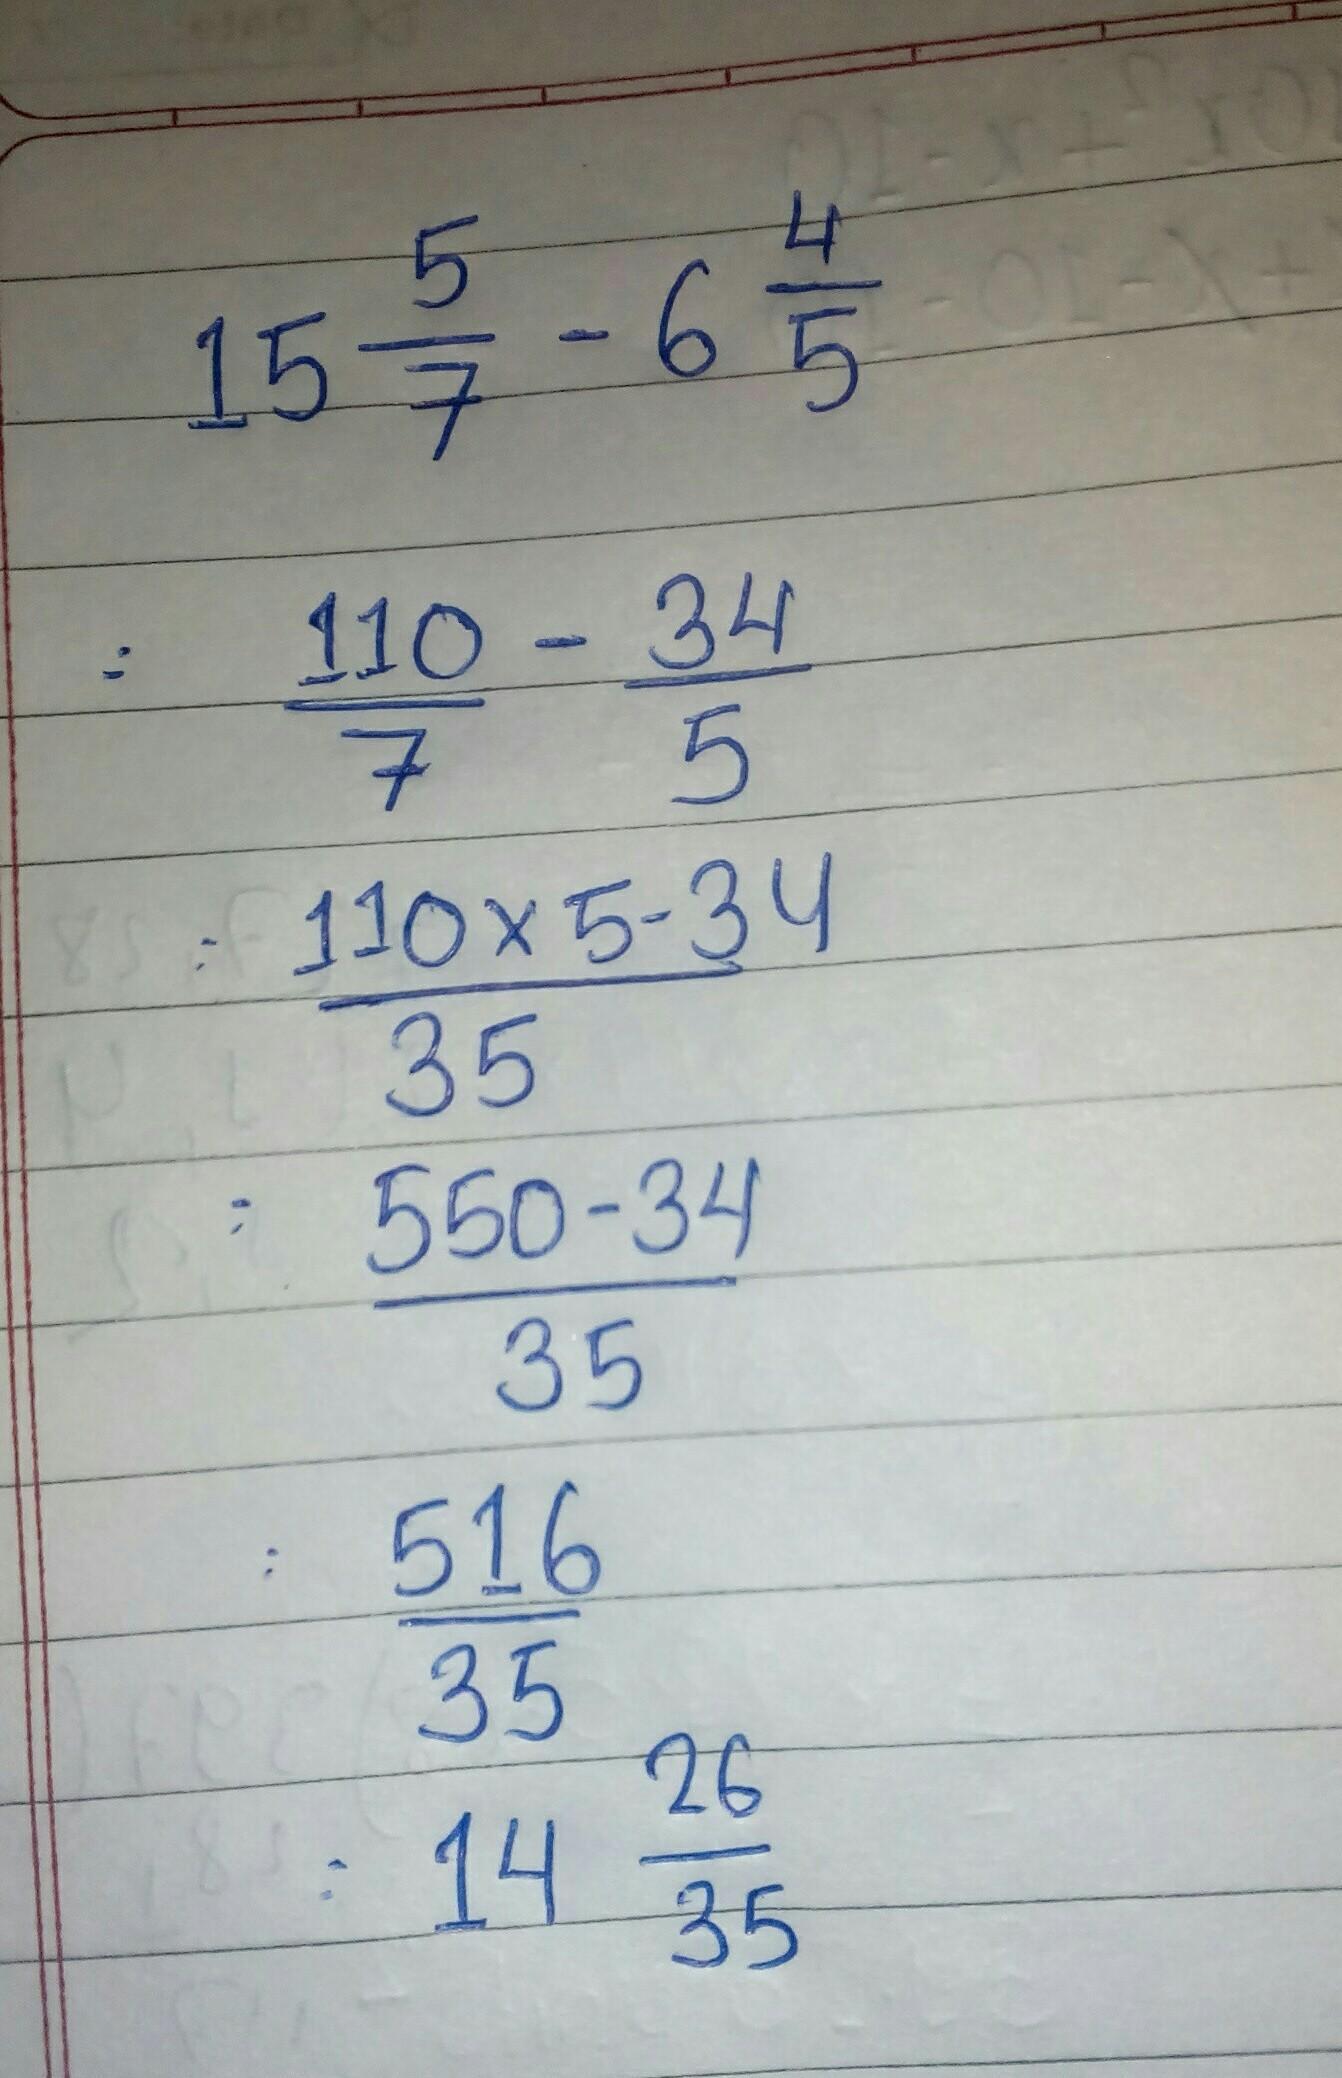 15 5/7 - 6 4/5
= 110/7 - 34/5
= 110 x 5 - 34/35
= 550 - 34/35
= 516/35
= 14 26/35